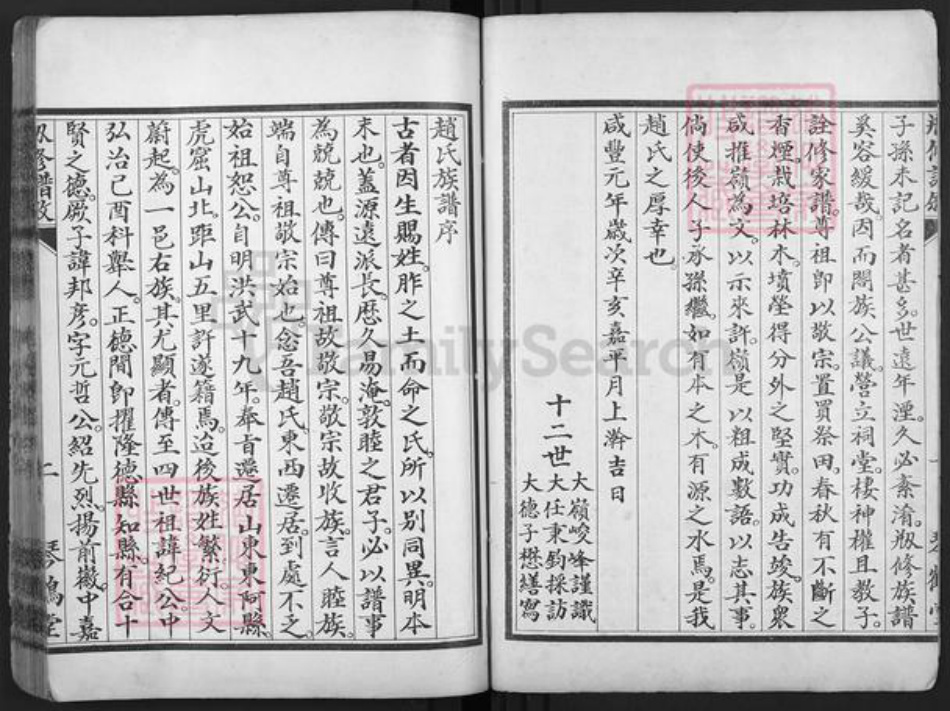 子孫未記名者甚多。世遠年湮。久必紊淆。剏修族譜
奚容緩哉。因而閤族公議。營立祠堂。棲神權且教子。
詮修家譜。尊祖卽以敬宗。置買祭田。春秋有不斷之
香煙。栽培林木。墳塋得分外之堅實。功成告竣。族衆
咸推嶺為文。以示來許。嶺是以粗成數語。以志其事。
倘使後人子承孫繼。如有本之木。有源之水焉。是我
趙氏之厚幸也。
咸豐元年歲次辛亥嘉平月上澣吉日
十二世
大嶺峻峰謹識
大任秉鈞採訪
大德子懋繕寫
琴鶴堂
趙氏族譜序
古者因生賜姓。胙之土而命之氏。所以別同異。明本
末也。蓋源遠派長。歷久易淹。敦睦之君子。必以譜事
為兢兢也。傳曰尊祖故敬宗。敬宗故收族。言人睦族。
端自尊祖敬宗始也。念吾趙氏。東西遷居。到處不乏。
始祖恕公。自明洪武十九年。奉旨遷居山東東阿縣。
虎窟山北。距山五里許遂籍焉。迨後族姓繁衍。人文
蔚起。為一邑右族。其尤顯者。傳至四世祖諱紀公。中
弘治己酉科舉人。正德間卽擢隆德縣知縣。有合十
賢之德。厥子諱邦彥。字元哲公。紹先烈。揚前徽。中嘉
二
琴鶴堂
FamilySearch